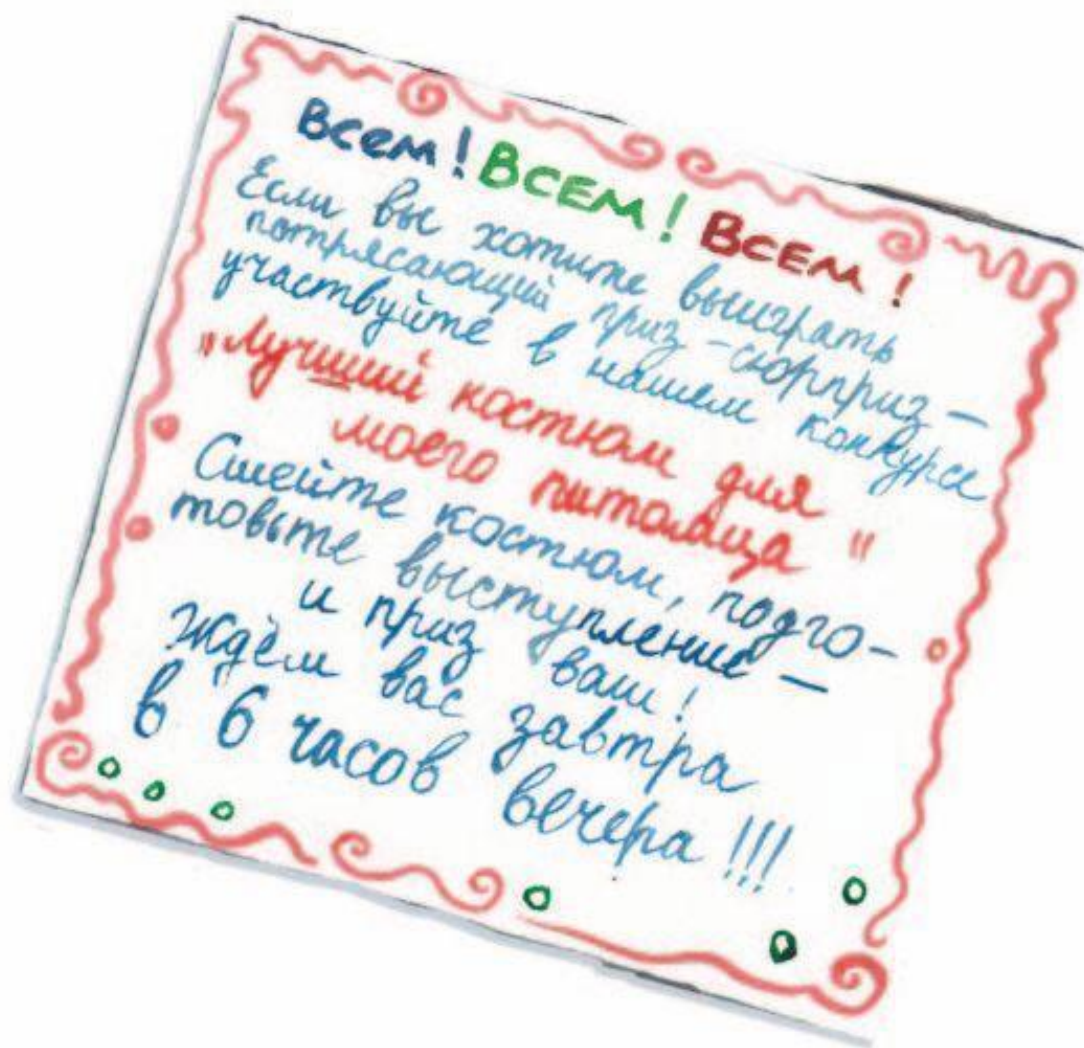 Всем! ВСЕМ! ВСЕМ!
Если вы хотите выиграть
потрясающий приз-сюрприз —
участвуйте в нашем конкурсе
"Лучший костюм для
моего питомца"
Сшейте костюм, подго-
товьте выступление —
и приз ваш!
Ждём вас завтра
в 6 часов вечера!!!